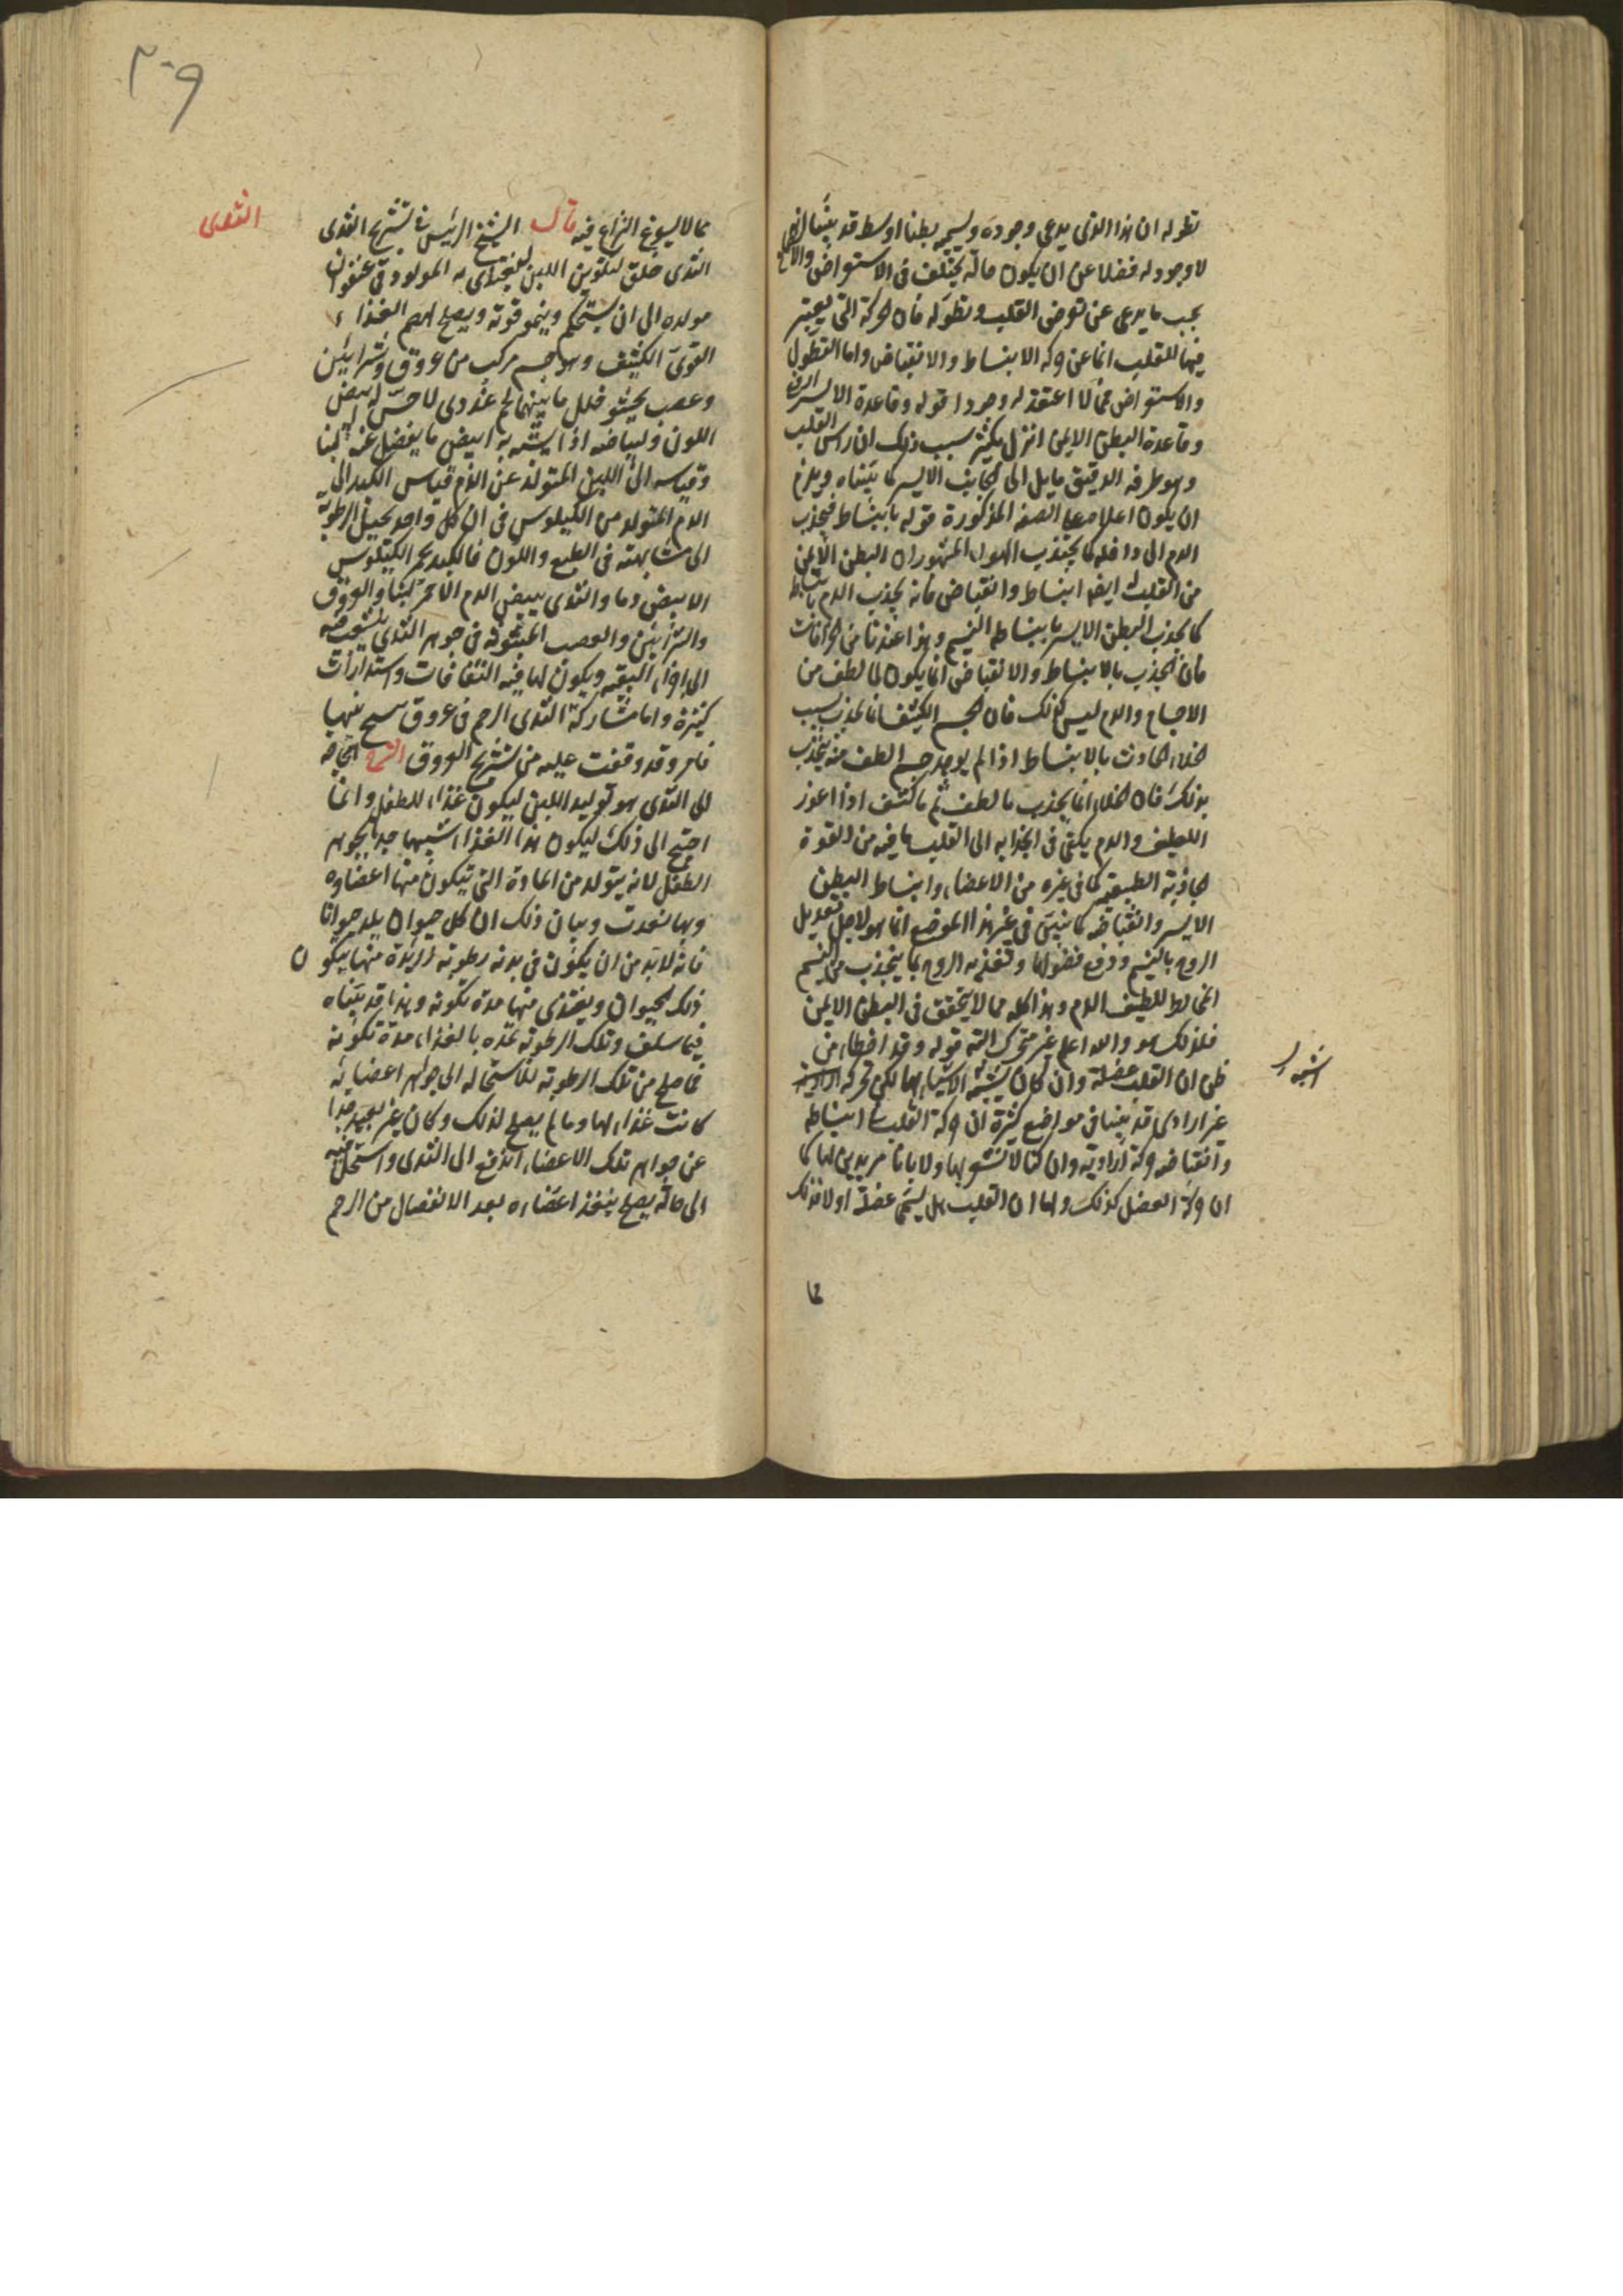 تطوله ان هذا الذى يدعى وجوده ويسميه بطنا اوسط قد بينا انه
لا وجود له فضلا عن ان يكون حاله يختلف فى الاستعراض والاجتماع
بحسب ما يدعى عن تعرض القلب وتطوله فان الحركة التى يعتبر
فيها للقلب انما عن حركة الانبساط والانقباض واما التطول
والاستعراض فمما لا اعتقد له وجودا قوله وقاعدة الايسر ارفع
وقاعدة البطن الايمن انزل بكثير سبب ذلك ان راس القلب
وهو طرفه الدقيق مايل الى الجانب الايسر كما بيناه ويلزم
ان يكون اعلاه على الصفة المذكورة قوله بانبساط فيجذب
الدم الى داخله كما يجتذب الهواء المشهور ان البطن الايمن
من القلب له ايضا انبساط وانقباض فانه يجذب الدم بانبساطه
كما يجذب البطن الايسر بانبساطه النسيم وهذا عندنا من الخرافات
فان الجذب بالانبساط والانقباض انما يكون لما لطف من
الاجسام والدم ليس كذلك فان الجسم الكثيف انما يجذب بسبب
الخلاء الحادث بالانبساط اذا لم يوجد جسم الطف منه ينجذب
بذلك فان الخلاء انما يجذب ما لطف ثم ما كثف اذا اعوز
اللطيف والدم يكفى فى انجذابه الى القلب ما فيه من القوة
الجاذبة الطبيعية كما فى غيره من الاعضاء وانبساط البطن
الايسر وانقباضه كما نبين فى غير هذا الموضع انما هو لاجل تعديل
الروح بالنسيم ودفع فضولها وتغذية الروح بما ينجذب من النسيم
المخالط للطيف الدم وهذا كله مما لا يتحقق فى البطن الايمن
فلذلك هو والله اعلم غير متحرك البتة قوله وقد اخطاء من
ظن ان القلب عضلة وان كان اشبه الاشياء بها لكن تحركه
غير ارادى قد بينا فى مواضع كثيرة ان حركة القلب انبساطه
وانقباضه حركة ارادية وان كنا لا نشعر بها ولا باننا مريدين لها كما
ان حركة العضل كذلك واما ان القلب هل يسمى عضلة او لا فذلك
مما
اشبه
٢٠٩
الثدى
مما لا يسوغ النزاع فيه قال الشيخ الرئيس فى تشريح الثدى
الثدى خلق لتكوين اللبن ليغتذى به المولود فى عنفوان
مولده الى ان يستحكم وينمو قوته ويصلح لهضم الغذاء
القوى الكثيف وهو جسم مركب من عروق وشرايين
وعصب يحشو خلل ما بينهما لحم غددى لا حس له ابيض
اللون ولبياضه اذا تشبه به ابيض ما يفضل عنه لبنا
وقياسه الى اللبن المتولد عن الدم قياس الكبد الى
الدم المتولد من الكيلوس فى ان كل واحد يحيل الرطوبة
الى مشابهته فى الطبع واللون فالكبد يحمر الكيلوس
الابيض دما والثدى يبيض الدم الاحمر لبنا والعروق
والشرايين والعصب المبثوثة فى جوهر الثدى يتشعب فيه
الى اخر البقية ويكون لها فيه التفافات واستدارات
كثيرة واما مشاركة الثدى الرحم فى عروق سح بينهما
فامر قد وقفت عليه من تشريح العروق الشرح الحاجة
الى الثدى هو توليد اللبن ليكون غذاء للطفل وانما
احتيج الى ذلك ليكون هذا الغذا شبيها جدا بجوهر
الطفل لانه يتولد من المادة التى يتكون منها اعضاوه
وبها نعدت وبيان ذلك ان كل حيوان يلد حيوانا
فانه لابد من ان يكون فى بدنه رطوبة زائدة منها يتكون
ذلك الحيوان ويغتذى منها مدة تكونه وهذا قد بيناه
فيما سلف وتلك الرطوبة تمده بالغذاء مدة تكونه
فما صلح من تلك الرطوبة للاستحالة الى جوهر اعضائه
كانت غذاء لها وما لم يصلح لذلك وكان غير بعيد جدا
عن جواهر تلك الاعضاء اندفع الى الثدى واستحال فيه
الى حالة يصلح بتغذ اعضاءه بعد الانفصال من الرحم